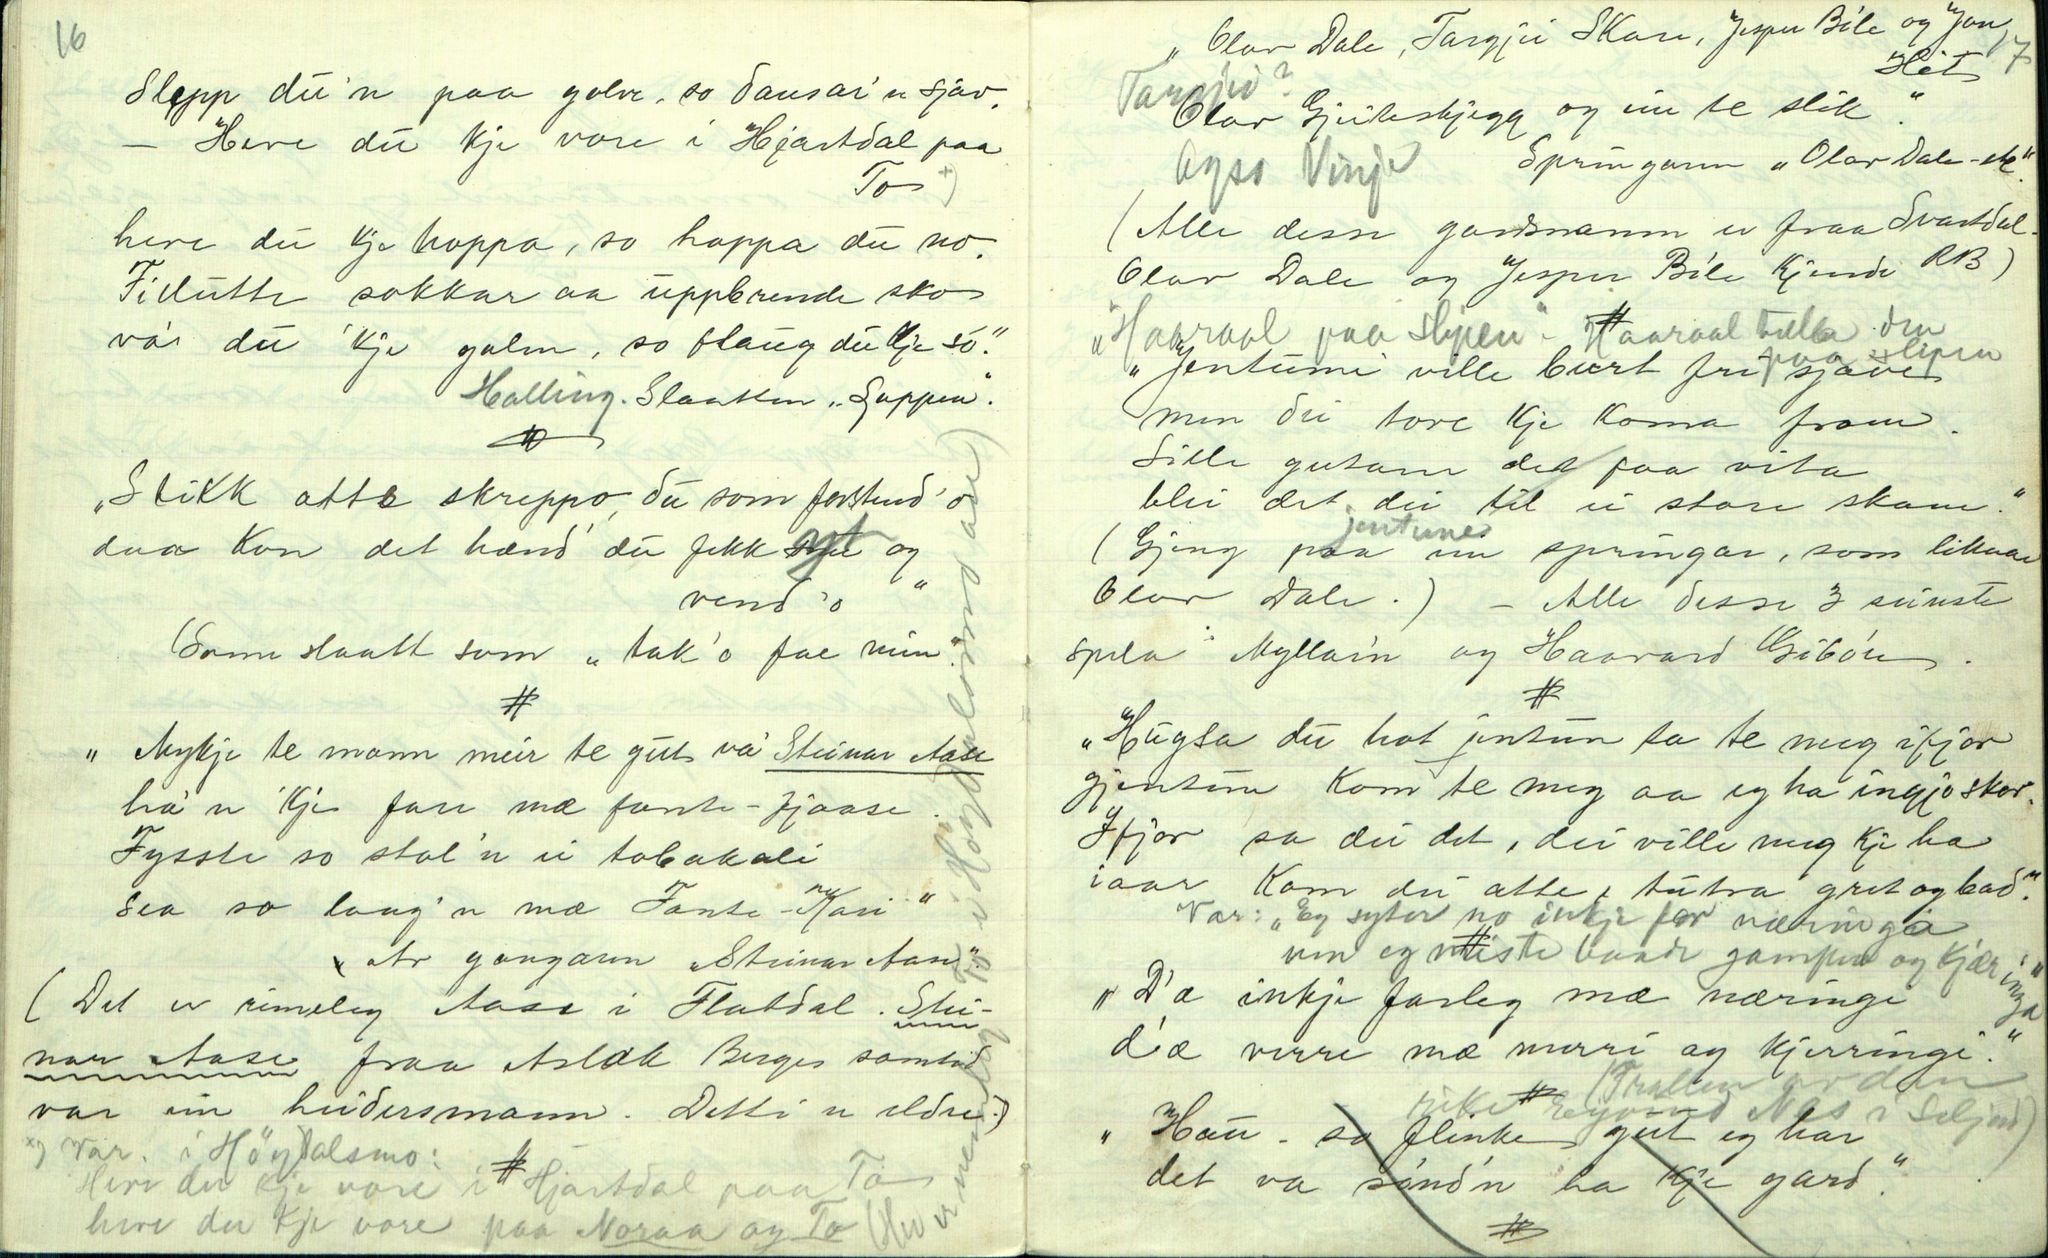 16
Slepp du'n paa golve, so dansar'n sjøv.
— Heve du kje vore i Hjartdal paa
To x)
heve du kje hoppa, so hoppa du no.
Fillutte sokkar aa uppbrende sko
va' du 'kje galen, so flaug du kje so."
Halling. Slaatten „Guppen".
#
„Stikk atte skreppo, du som forstend'o
daa kan det hænd' du fekk sjå og
vend'o"
(Same slaatt som „tak'o fae min".
#
„Mykje te mann meir te gut va' Steinar Aase
ha'n 'kje fare mæ fante-fjaase.
Fysste so stal'n ei tobakali
sea so laag'n mæ Fante-Kari"
Av gangaren „Steinar Aase".
(Det er rimeleg Aase i Flatdal. Stei-
nar Aase fraa Aslak Berges samtid
var ein heidersmann. Detti er eldre.)
x) Var. i Høydalsmo:
Heve du kje vore i Hjartdal paa To
heve du kje vore paa Noraa og To

17
„Olav Dale, Targjei Skare, Jesper Bile og Jon
Høt
Targjei?
Olav Gjeiteskjegg og ein te slik".
Ogso Vinje
Springaren „Olav Dale-n".
(Alle desse gardsnamn er fraa Svartdal.
Olav Dale og Jesper Bile kjende RB)
„Haavaal paa slipen". Haavaal tulla den
paa slipen
#
„Jentune ville burt fri sjøve
men dei tore kje koma fram.
Sille gutane det faa vita
blei det dei til ei store skam."
jentune
(Gjeng paa ein springar, som liknar
Olav Dale.) — Alle desse 3 seinste
spela Myllarin og Haavard Gibøen.
#
„Hugsa du hot jentun sa te meg ifjor
gjentun kom te meg aa eg ha ingjo skor.
Ifjor sa dei det, dei ville meg kje ha
iaar kom dei atte, tutra gret og bad".
Var: „Eg syter no inkje for næringa
um eg miste baade gampen og kjæringa"
#
„D'æ inkje farleg mæ næringi
d'æ verre mæ merri og kjerringi."
(Trallen av den
rike Eyvind Nes i Seljord)
#
„Hau - so flinke gut eg har
det va sønd'n ha kje gard."
#